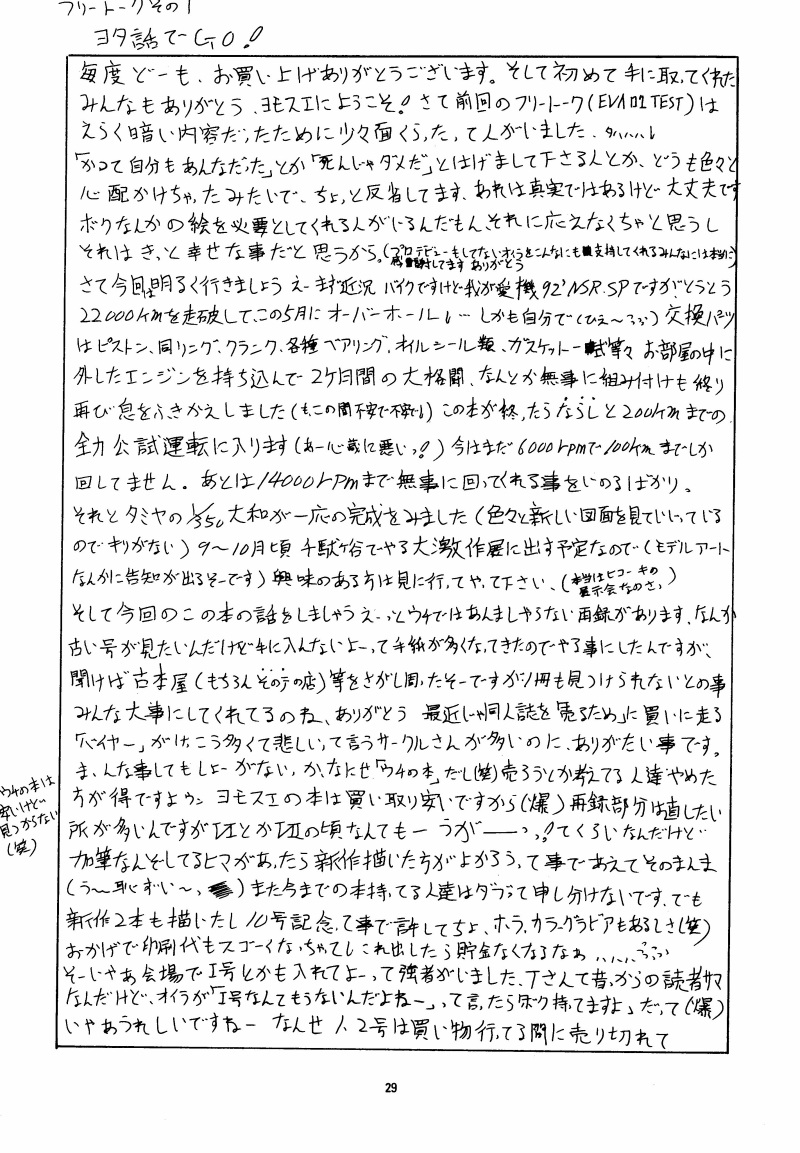 フリートークその1
ヨタ話でGO!
毎度どーも、お買い上げありがとうございます。そして初めて手に取ってくれた
みんなもありがとう、ヨモスエにようこそ! さて前回のフリートーク(EVA 02 TEST)は
えらく暗い内容だったために少々面くらったって人がいました、タハハハハ
「かつて自分もあんなだった」とか「死んじゃダメだ」とはげまして下さる人とか、どうも色々と
心配かけちゃったみたいで、ちょっと反省してます、あれは真実ではあるけど大丈夫です
ボクなんかの絵を必要としてくれる人がいるんだもん、それに応えなくちゃと思うし
それはきっと幸せな事だと思うから。(プロデビューもしてないオイラをこんなにも支持してくれるみんなには本当に
感謝してます ありがとう
さて今回は明るく行きましょう えーまず近況 バイクですけど我が愛機92'NSR.SPですがとうとう
22000kmを走破して、この5月にオーバーホールし… しかも自分で(ひえ〜ふふ) 交換パーツ
はピストン、同リング、クランク、各種ベアリング、オイルシール類、ガスケット一式等々 お部屋の中に
外したエンジンを持ち込んで2ヶ月間の大格闘、なんとか無事に組み付けも終り
再び息をふきかえしました(もこの間不安で不安で) この本が終ったらならしと200kmまでの
全力公試運転に入ります(あー心蔵に悪いっ!) 今はまだ6000rpmで100kmまでしか
回してません。あとは14000rpmまで無事に回ってくれる事をいのるばかり。
それとタミヤの1/350大和が一応の完成をみました(色々と新しい図面を見ていじっている
のでキリがない) 9〜10月頃 千駄ヶ谷でやる大激作展に出す予定なので(モデルアート
なんかに告知が出るそーです) 興味のある方は見に行ってやって下さい、(本当はヒコーキの
展示会なのさっ)
そして今回のこの本の話をしましょう えーっとウチではあんましやらない再録があります、なんか
古い号が見たいんだけど手に入んないよーって手紙が多くなってきたのでやる事にしたんですが、
聞けば古本屋(もちろんその手の店)等をさがし回ったそーですが1冊も見つけられないとの事
みんな大事にしてくれてるのね、ありがとう 最近じゃ同人誌を「売るため」に買いに走る
「バイヤー」がけっこう多くて悲しいって言うサークルさんが多いのに、ありがたい事です。
ま、んな事してもしょーがないか、なんせ「ウチの本」だし(笑)売ろうとか考えてる人達やめた
方が得ですよゥン ヨモスエの本は買い取り安いですから(爆) 再録部分は直したい
所が多いんですがⅠとかⅡの頃なんてもー うがーーっっ!てくらいなんだけど
加筆なんぞしてるヒマがあったら新作描いたちがよかろうって事であえてそのまんま
(う〜恥ずい〜) また今までの本持ってる人達はダブって申し分けないです、でも
新作2本も描いたし10号記念って事で許してちょ、ホラ、カラーグラビアもあるしさ(笑)
おかげで印刷代もスゴーくなっちゃってし これ出したら貯金なくなるなぁ……ふふ
そーいやあ会場でⅠ号とかも入れてよーって強者がいました、Tさんて昔っからの読者サマ
なんだけど、オイラが「Ⅰ号なんてもうないんだよねー」って言ったら「ボク持ってますよ」だって(爆)
いやあうれしいですねー なんせ1、2号は買い物行ってる間に売り切れて
ウチの本は
安いけど
見つからない
(笑)
29